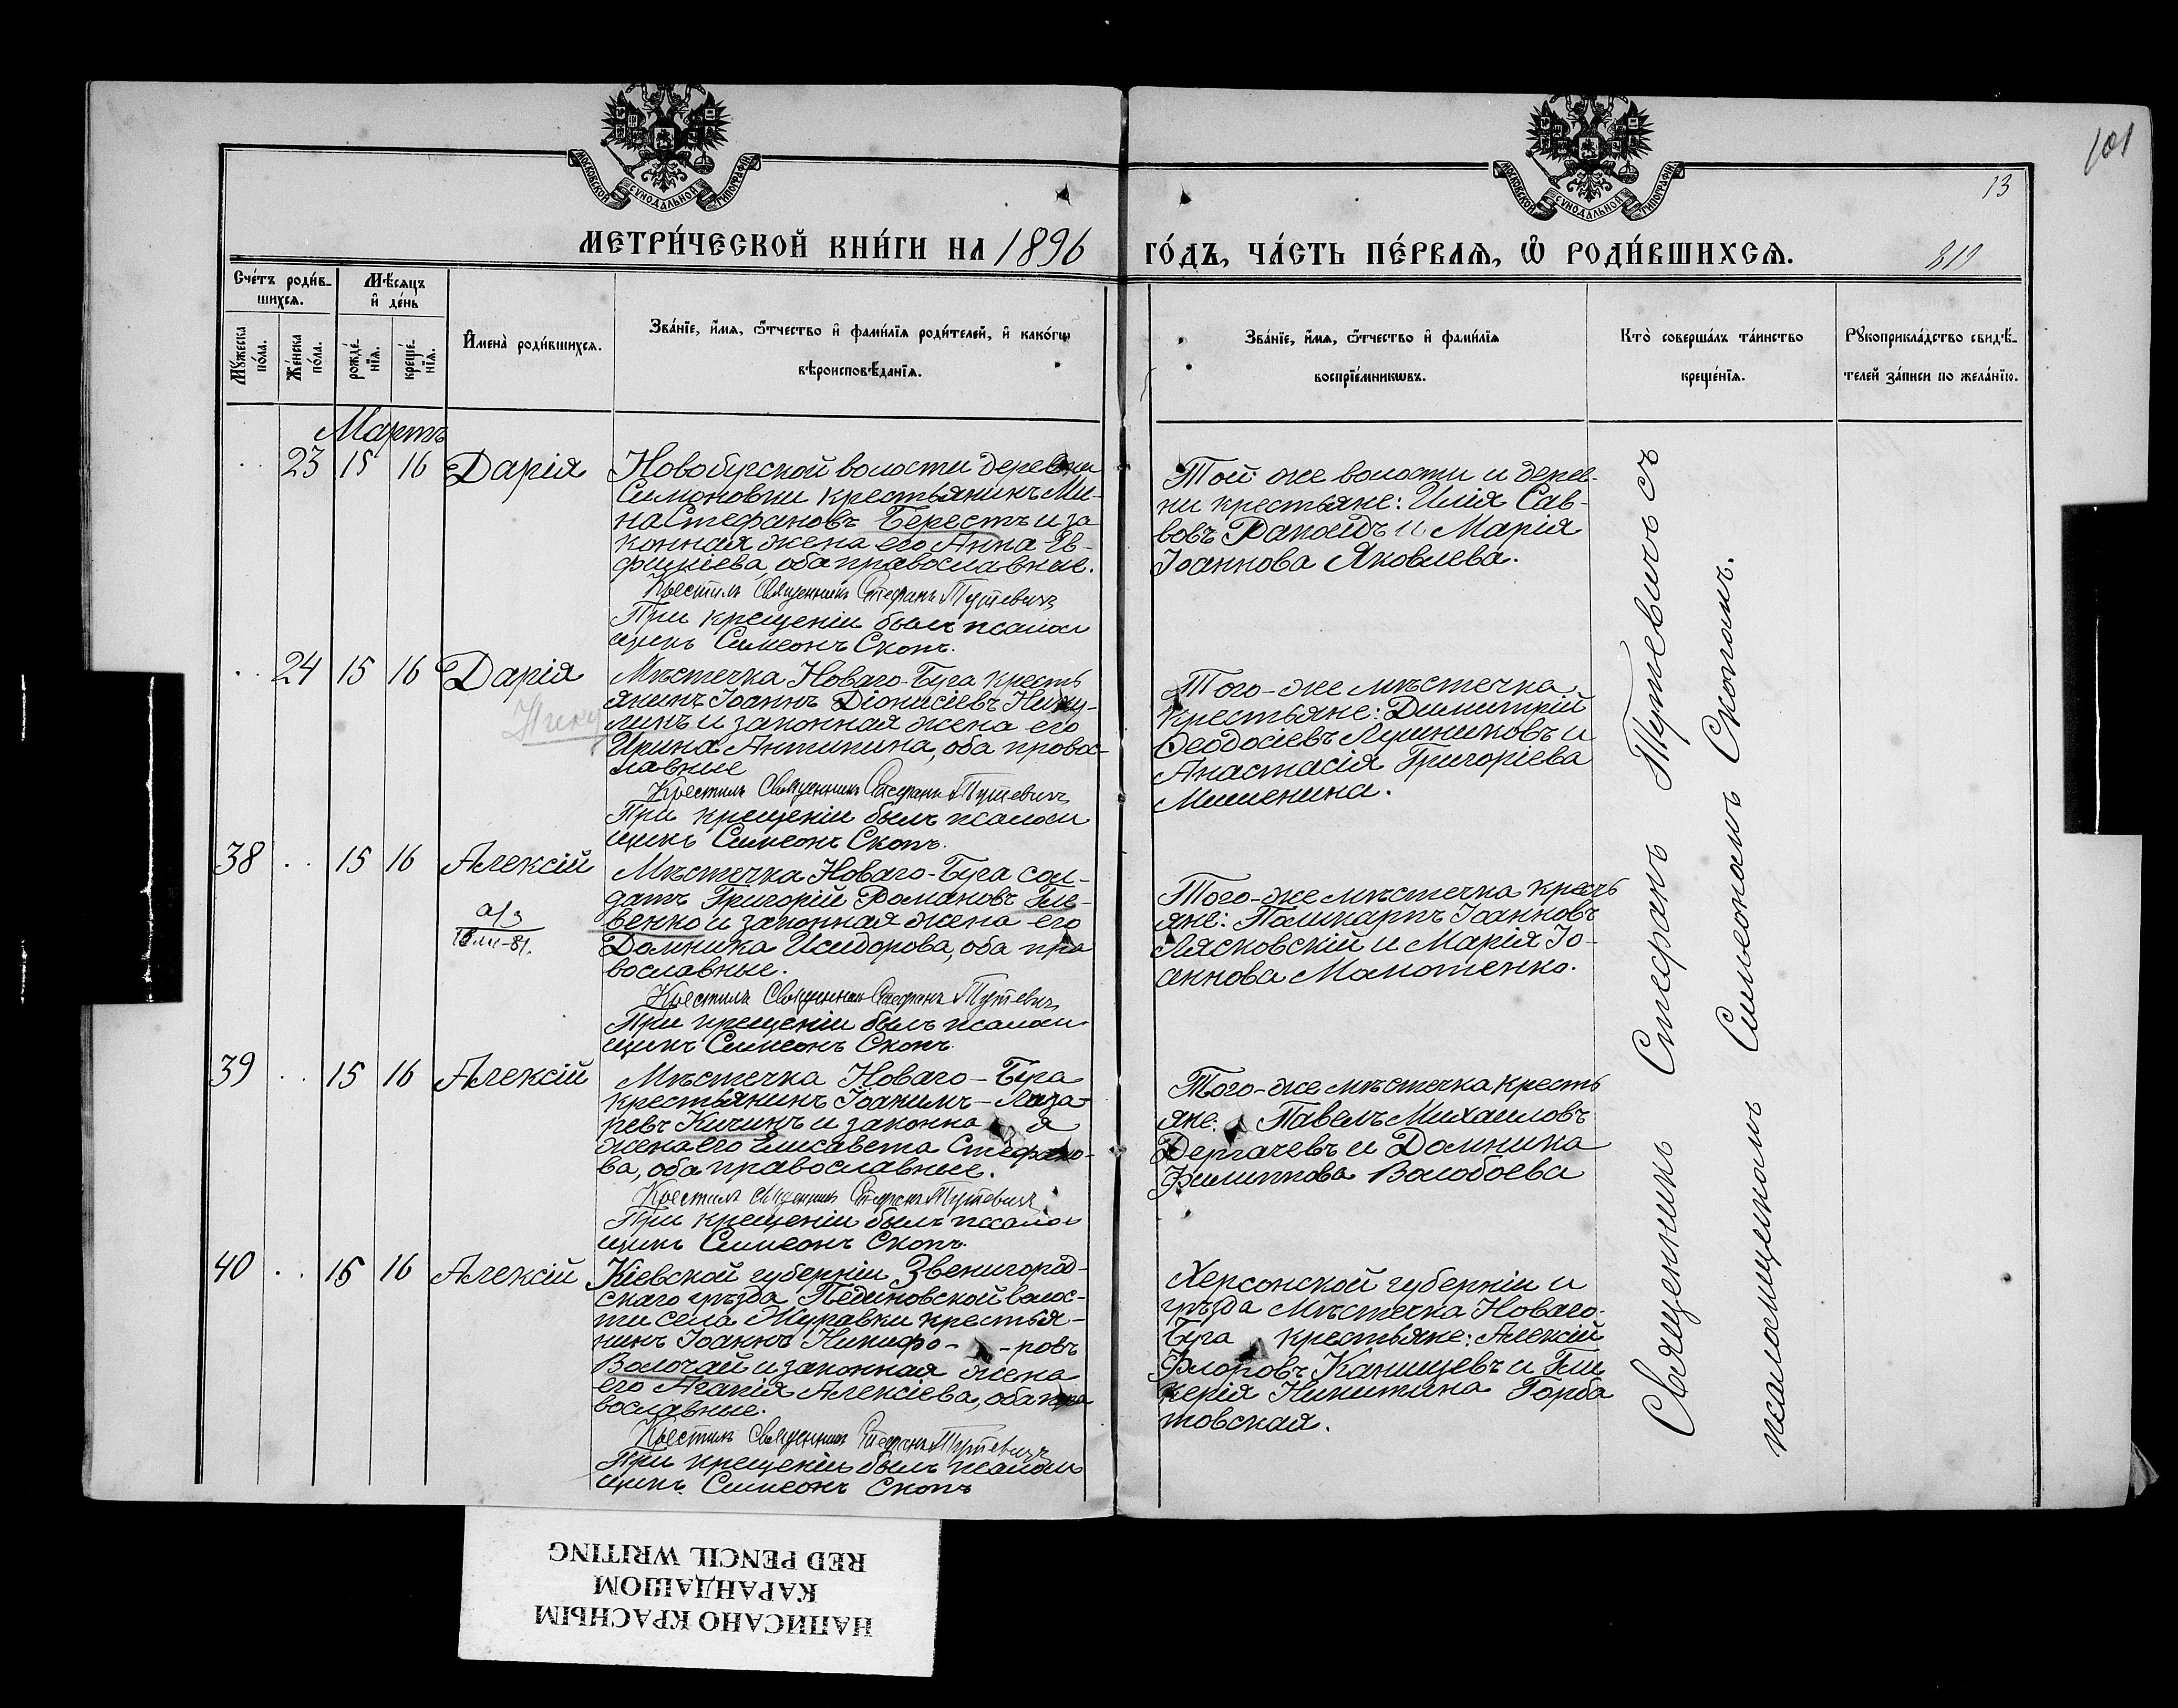 101
13
МОСКОВСКОЙ СѴНОДАЛЬНОЙ ТИПОГРАФІИ
МОСКОВСКОЙ СѴНОДАЛЬНОЙ ТИПОГРАФІИ
МЕТРИ́ЧЕСКОЙ КНИ́ГИ НА 1896 ГО́ДЪ, ЧА́СТЬ ПЕ́РВАЯ, Ѽ РОДИ́ВШИХСЯ.
Сче́тъ роди́в-
шихся.
Мѣ́сяцъ
и҆ де́нь
Мꙋ́жеска
по́ла.
Же́нска
по́ла.
рожде́-
нїя.
креще́-
нїя.
И҆мена̀ роди́вшихся.
Зва́нїе, и҆́мя, ѻ҆́тчество и҆ фами́лїя роди́телей, и҆ како́гѡ
вѣроисповѣ́данїя.
Зва́нїе, и҆́мя, ѻ҆́тчество и҆ фами́лїя
воспрїе́мникѡвъ.
Кто̀ соверша́лъ та́инство
креще́нїя.
Рꙋкоприкла́дство свидѣ́-
телей за́писи по жела́нїю.
Мартъ
23 15 16 Дарія
Новобугской волости деревни
Симоновки крестьянинъ Ми-
на Стефановъ Берестъ и за
конная жена его Анна Ев-
фиміева, оба православные.
Крестилъ Священникъ Стефанъ Путевичъ
При крещеніи былъ псалом
щикъ Симеонъ Скопъ.
Той же волости и дерев-
ни крестьяне: Илія Сав-
вовъ Ракоидъ и Марія
Іоаннова Яковлева.
24 15 16 Дарія
Мѣстечка Новаго-Буга кресть
янинъ Іоаннъ Діонисіевъ Нику-
линъ и законная жена его
Ирина Антипина, оба правос-
лавные
Крестилъ Священникъ Стефанъ Путевичъ
При крещеніи былъ псалом
щикъ Симеонъ Скопъ.
Того-же мѣстечка
крестьяне: Димитрій
Ѳеодосіевъ Лушниковъ и
Анастасія Григоріева
Мишенина.
38 15 16 Алексій
Мѣстечка Новаго-Буга сол-
датъ Григорій Романовъ Гле-
венко и законная жена его
Домника Исидорова, оба пра
вославные.
Крестилъ Священникъ Стефанъ Путевичъ
При крещеніи былъ псалом
щикъ Симеонъ Скопъ.
Того-же мѣстечка кресть
яне: Поликарпъ Іоанновъ
Лясковскій и Марія Іо-
аннова Мамотенко.
39 15 16 Алексій
Мѣстечка Новаго-Буга
крестьянинъ Іоакимъ Лаза-
ревъ Кичинъ и законная
жена его Елисавета Стефано-
ва, оба православные.
Крестилъ Священникъ Стефанъ Путевичъ
При крещеніи былъ псалом
щикъ Симеонъ Скопъ.
Того-же мѣстечка кресть
яне: Павелъ Михаиловъ
Дергачевъ и Домника
Филиппова Волобоева
40 15 16 Алексій
Кіевской губерніи Звенигород-
скаго уѣзда Пединовской волос-
ти села Журавки крестья-
нинъ Іоаннъ Никифо- -ровъ
Волочай и законная жена
его Агапія Алексіева, оба пра
вославные.
Крестилъ Священникъ Стефанъ Путевичъ
При крещеніи былъ псалом
щикъ Симеонъ Скопъ
Херсонской губерніи и
уѣзда Мѣстечка Новаго-
Буга крестьяне: Алексій
Флоровъ Канищевъ и Гли
керія Никитина Горба
товская.
Священникъ Стефанъ Путевичъ съ
псаломщикомъ Симеономъ Скопомъ.
НАПИСАНО КРАСНЫМ
КАРАНДАШОМ
RED PENCIL WRITING